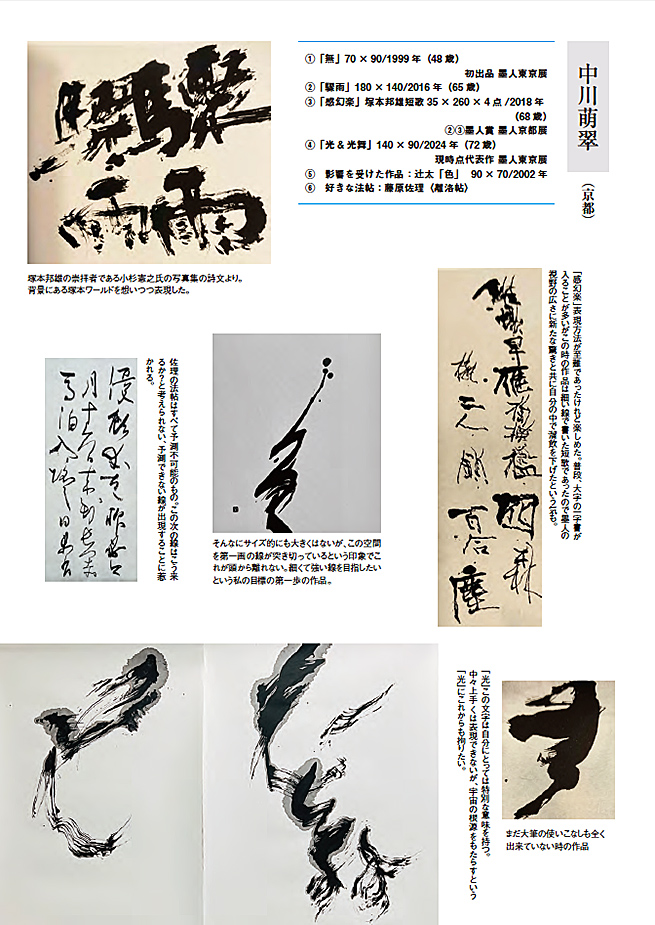 中川萌翠
（京都）
①「無」70 × 90/1999 年（48 歳）
初出品 墨人東京展
②「驟雨」180 × 140/2016 年（65 歳）
③「感幻楽」塚本邦雄短歌 35 × 260 × 4 点 /2018 年
（68 歳）
②③墨人賞 墨人京都展
④「光 & 光舞」140 × 90/2024 年（72 歳）
現時点代表作 墨人東京展
⑤　影響を受けた作品：辻太「色」　90 × 70/2002 年
⑥　好きな法帖：藤原佐理〈離洛帖〉
驟
雨
塚本邦雄の崇拝者である小杉憲之氏の写真集の詩文より。
背景にある塚本ワールドを想いつつ表現した。
「感幻楽」表現方法が至難であったけれど楽しめた。普段、大字の一字書が
入ることが多いがこの時の作品は細い線で書いた短歌であったので墨人の
視野の広さに新たな驚きと共に自分の中で溜飲を下げたという気も。
佐理の法帖はすべて予測不可能のもの。この次の線はこう来
るか？と考えられない、予測できない線が出現することに惹
かれる。
そんなにサイズ的にも大きくはないが、この空間
を第一画の線が突き切っているという印象でこ
れが頭から離れない。細くて強い線を目指したい
という私の目標の第一歩の作品。
「光」この文字は自分にとっては特別な意味を持つ。
中々上手くは表現できないが、宇宙の根源をもたらすという
「光」にこれからも拘りたい。
まだ大筆の使いこなしも全く
出来ていない時の作品